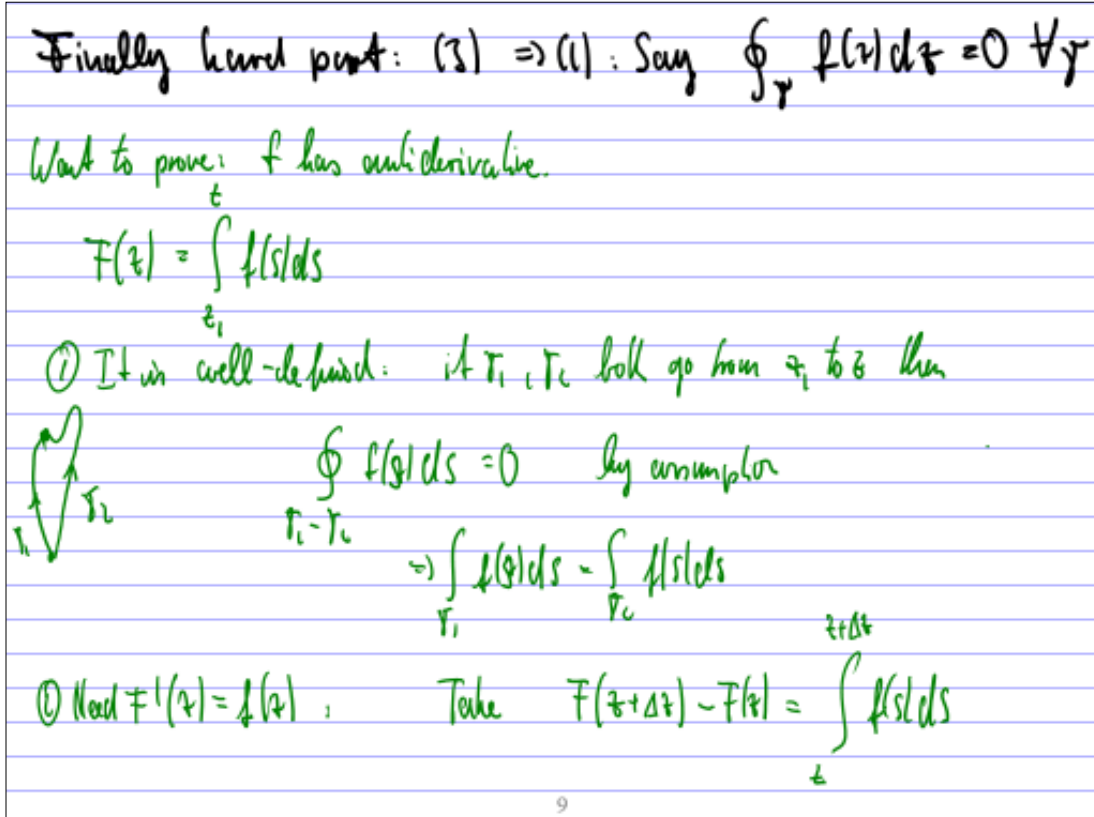 Finally hard part: (3) ⇒ (1): Say ∮_γ f(z)dz = 0 ∀γ
Want to prove: f has antiderivative.
F(z) = ∫_{z₁}^{z} f(s)ds
① It is well-defined: if γ₁, γ₂ both go from z₁ to z then
∮_{γ₁-γ₂} f(s)ds = 0 by assumption
γ₁ γ₂
⇒ ∫_{γ₁} f(s)ds = ∫_{γ₂} f(s)ds
② Need F'(z) = f(z): Take F(z+Δz) - F(z) = ∫_{z}^{z+Δz} f(s)ds
9